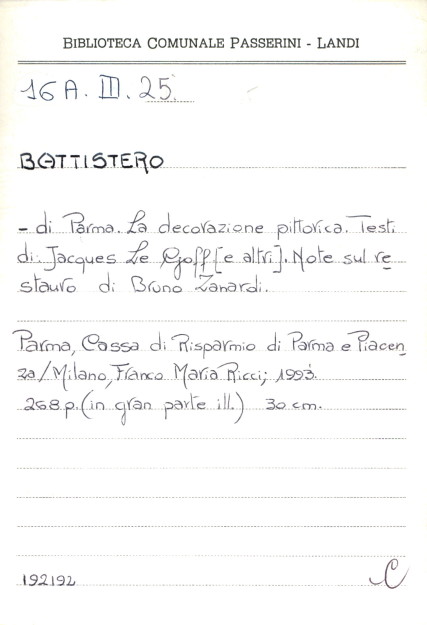 BIBLIOTECA COMUNALE PASSERINI - LANDI
16 A. III. 25.
BATTISTERO
- di Parma. La decorazione pittorica. Testi
di Jacques Le Goff [e altri]. Note sul re
stauro di Bruno Zanardi.
Parma, Cassa di Risparmio di Parma e Piacen
za/Milano, Franco Maria Ricci, 1993.
268 p. (in gran parte ill.) 30 cm.
192192
C